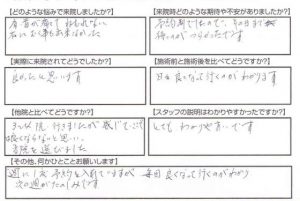 【どのような悩みで来院しましたか?】
【来院時どのような期待や不安がありましたか?】
肩 首が痛くて ねむれない
予約制でしたので、その日まで
待つのがつらかったです
【実際に来院されてどうでしたか?】
良かったと思います
【施術前と施術後を比べてどうですか?】
日々良くなって行くのがわかります
【他院と比べてどうですか?】
3つ位 院 行きましたが
良くならないと思い
【スタッフの説明はわかりやすかったですか?】
とても わかりやすいです
【その他、何かひとことお願いします】
週に1度 予約を入れていますが 毎回 良くなって行くのがわかり
次の週がたのしみです